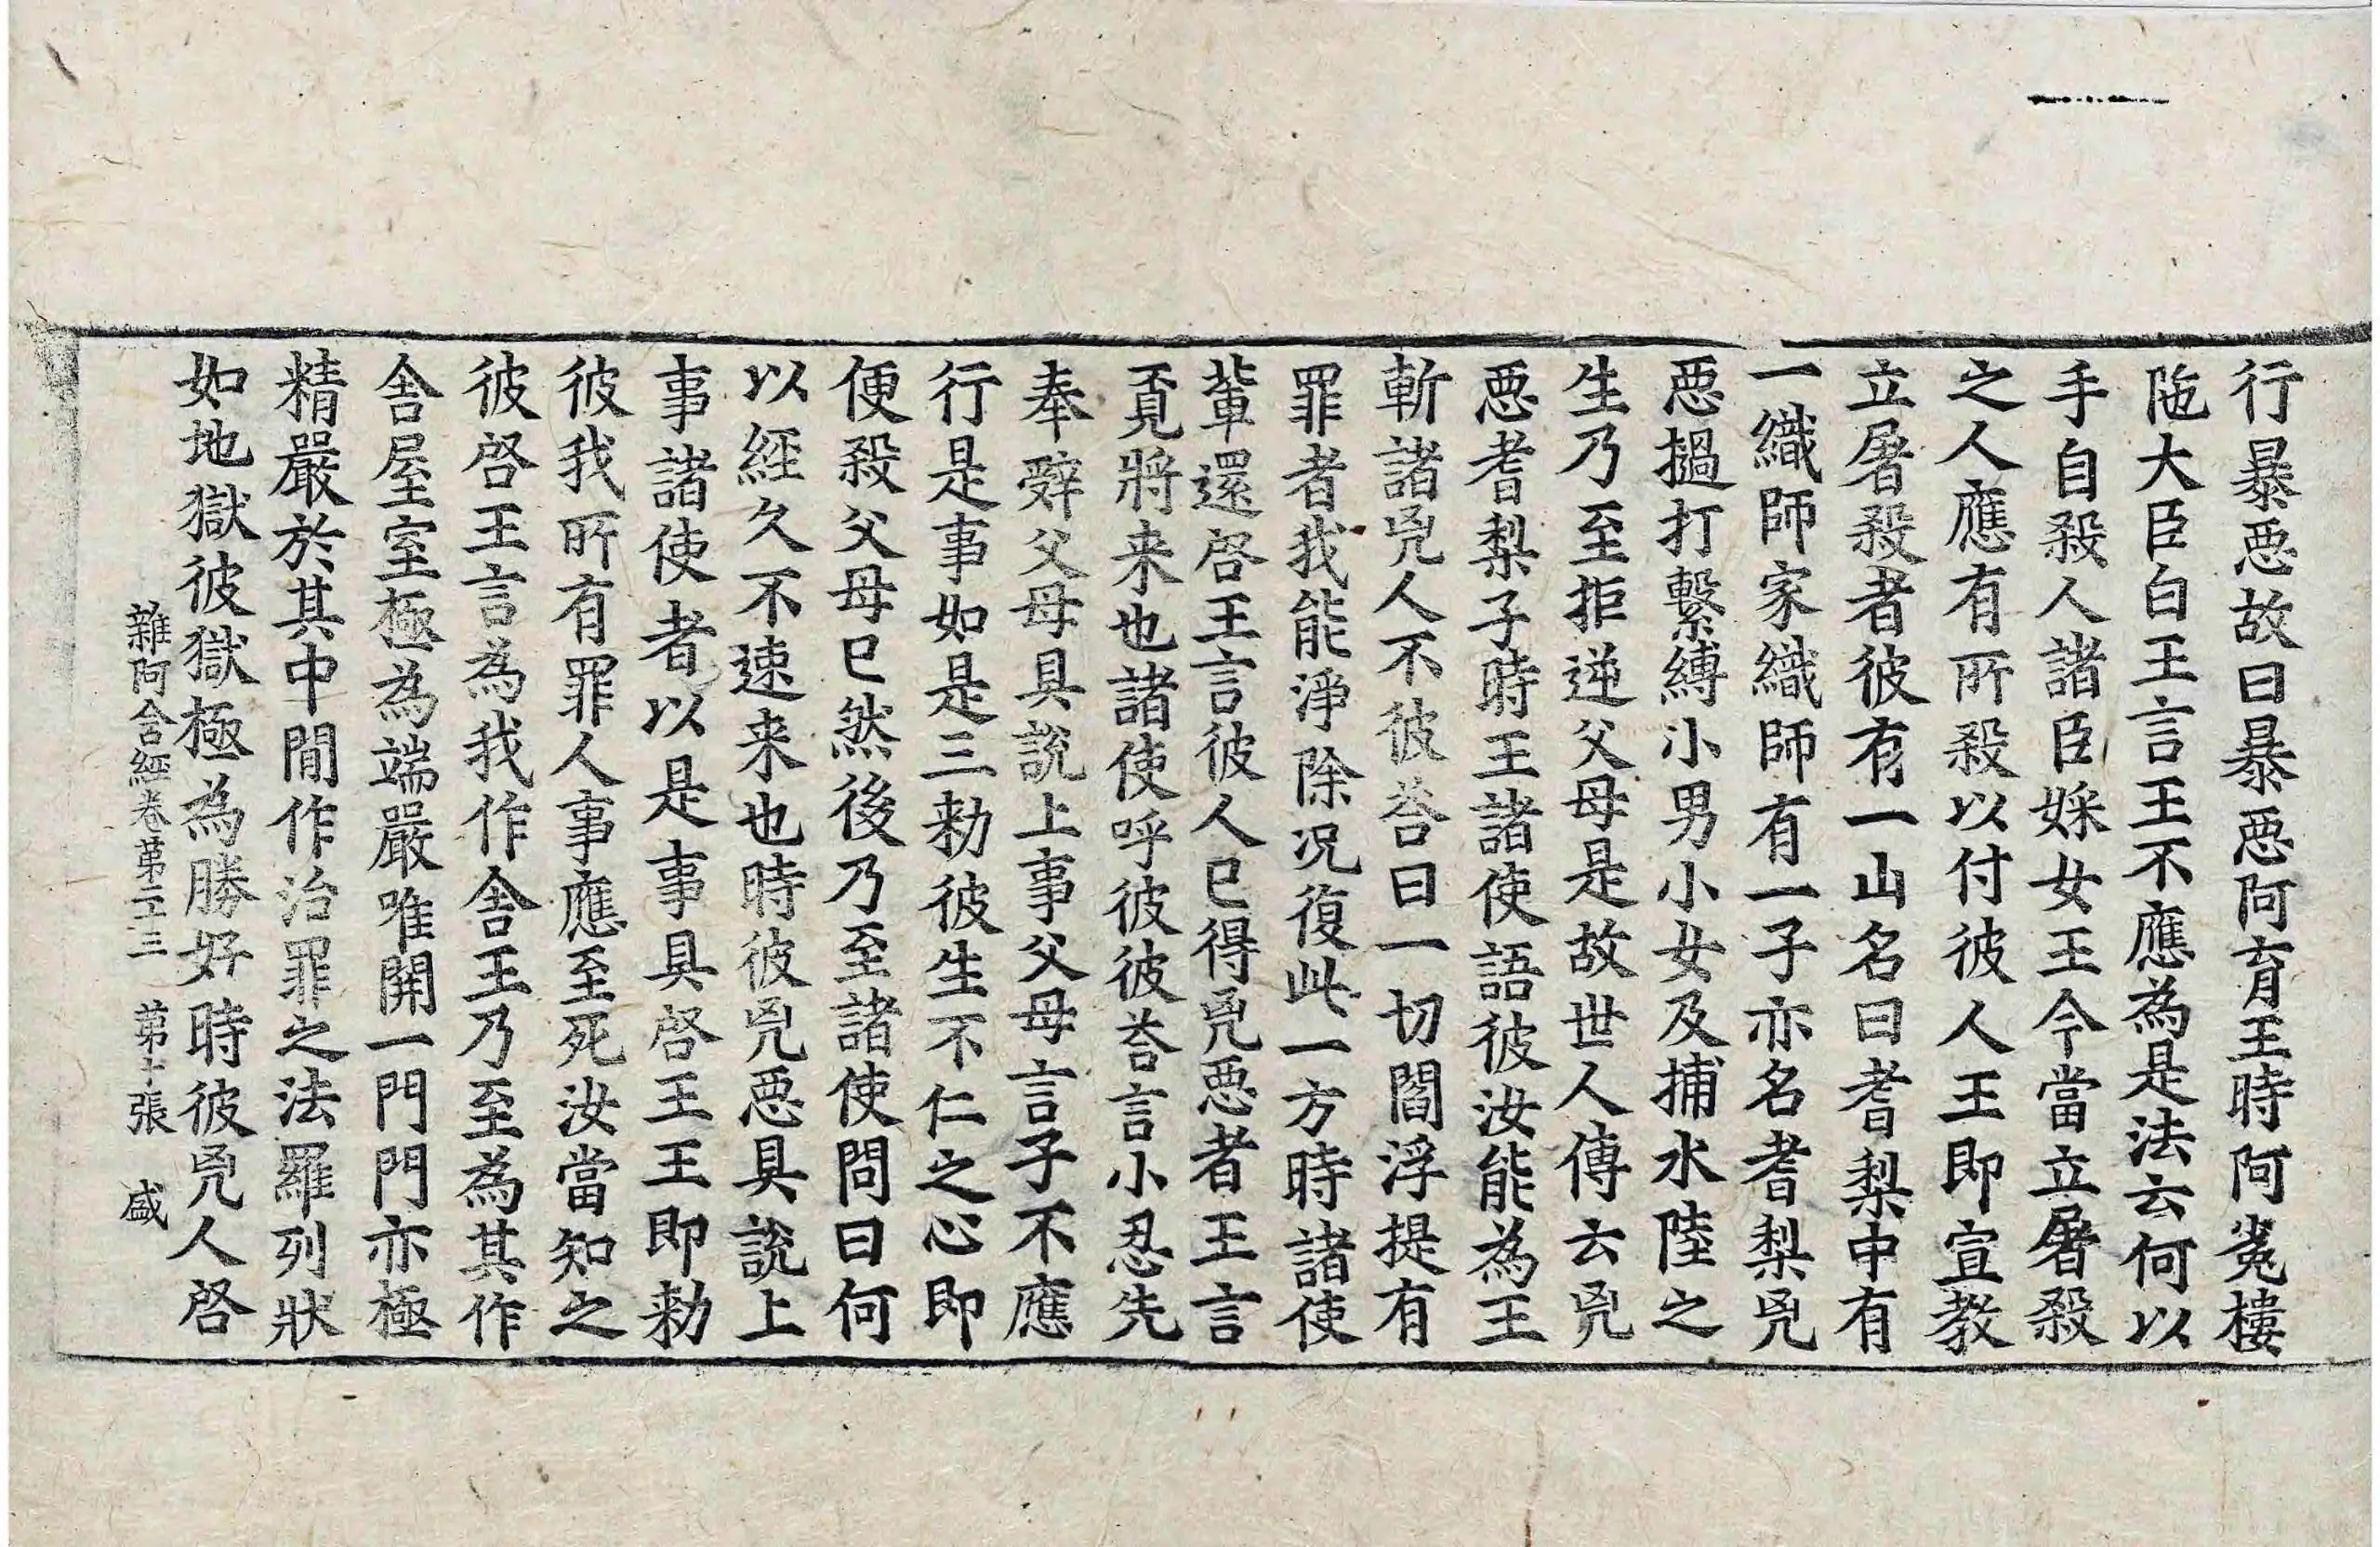 行暴惡故曰暴惡阿育王時阿㝹樓
陁大臣白王言王不應為是法云何以
手自殺人諸臣婇女王今當立屠殺
之人應有所殺以付彼人王即宣教
立屠殺者彼有一山名曰耆梨中有
一織師家織師有一子亦名耆梨兇
惡撾打繫縛小男小女及捕水陸之
生乃至拒逆父母是故世人傳云兇
惡耆梨子時王諸使語彼汝能為王
斬諸兇人不彼荅曰一切閻浮提有
罪者我能淨除況復此一方時諸使
軰還啓王言彼人已得兇惡者王言
覔將来也諸使呼彼彼荅言小忍先
奉辤父母具說上事父母言子不應
行是事如是三勑彼生不仁之心即
便殺父母已然後乃至諸使問曰何
以經久不速来也時彼兇惡具說上
事諸使者以是事具啓王王即勑
彼我所有罪人事應至死汝當知之
彼啓王言為我作舍王乃至為其作
舍屋室極為端嚴唯開一門門亦極
精嚴於其中閒作治罪之法羅列狀
如地獄彼獄極為勝好時彼兇人啓
雜阿含經卷第二十三　第十張　盛